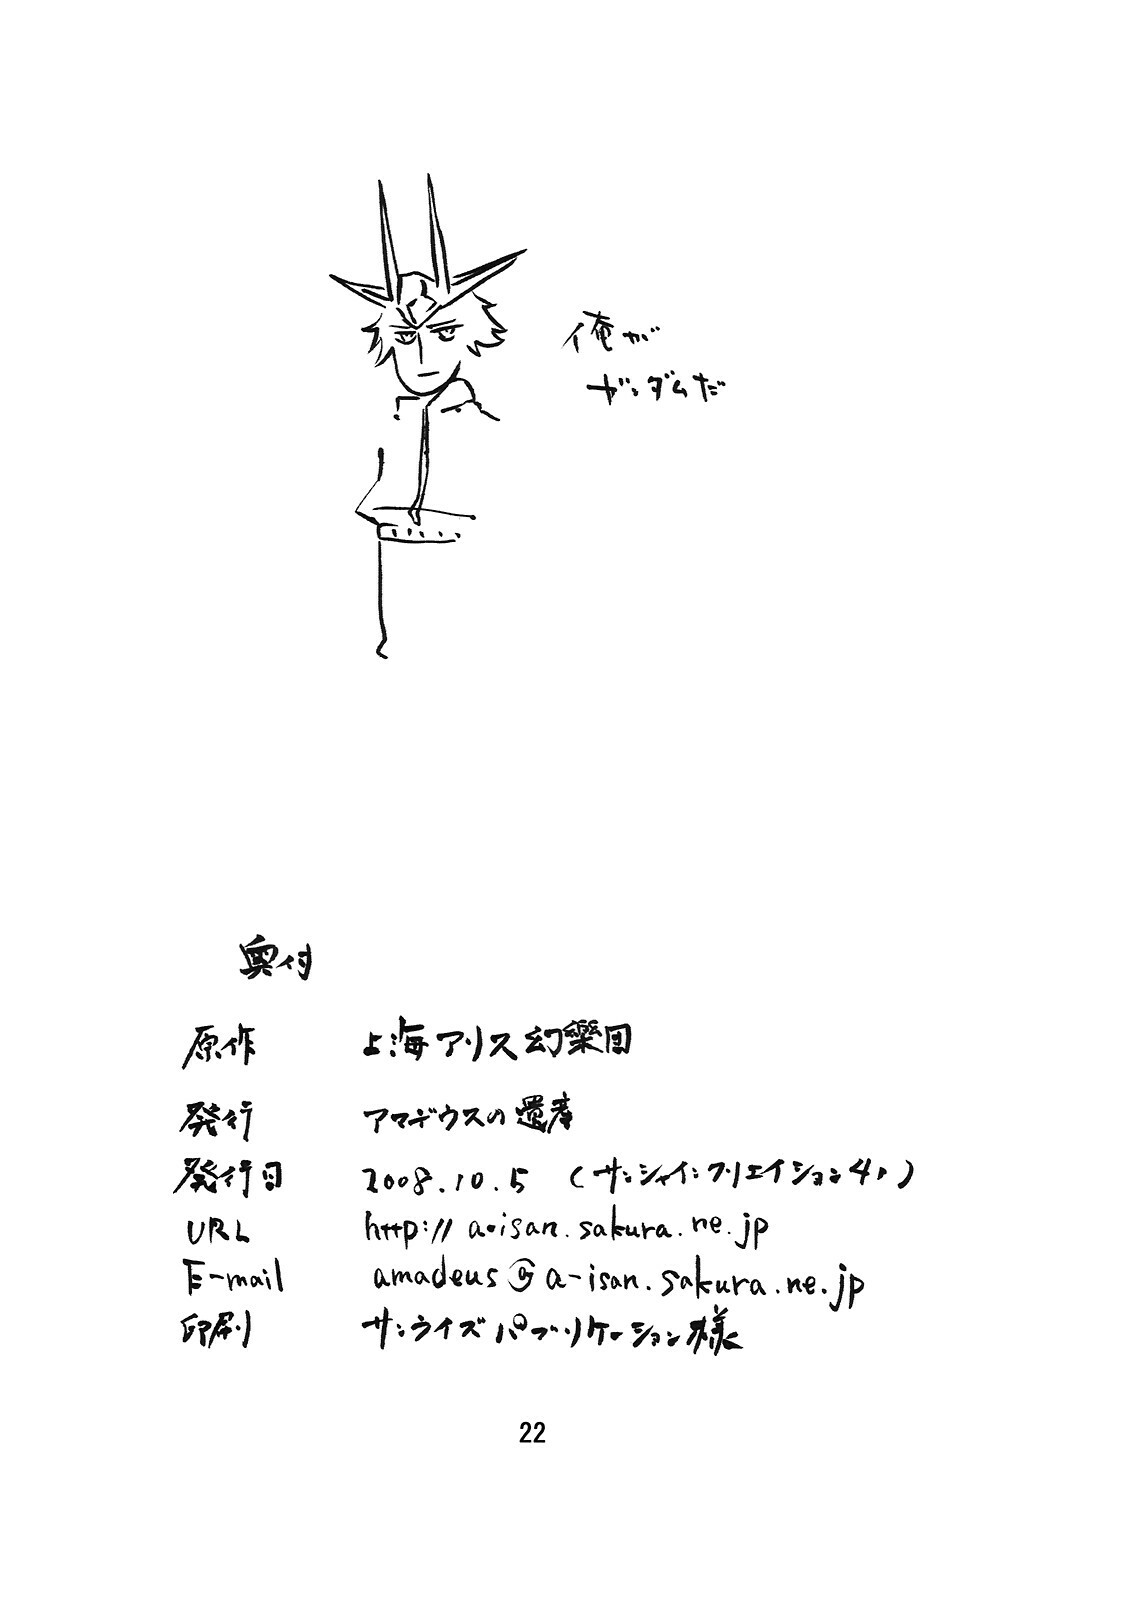 俺が
ガンダムだ
奥付
原作 上海アリス幻樂団
発行 アマデウスの遺産
発行日 2008.10.5 (サンシャインクリエイション41)
URL http://a-isan.sakura.ne.jp
E-mail amadeus@a-isan.sakura.ne.jp
印刷 サンライズパブリケーション様
22